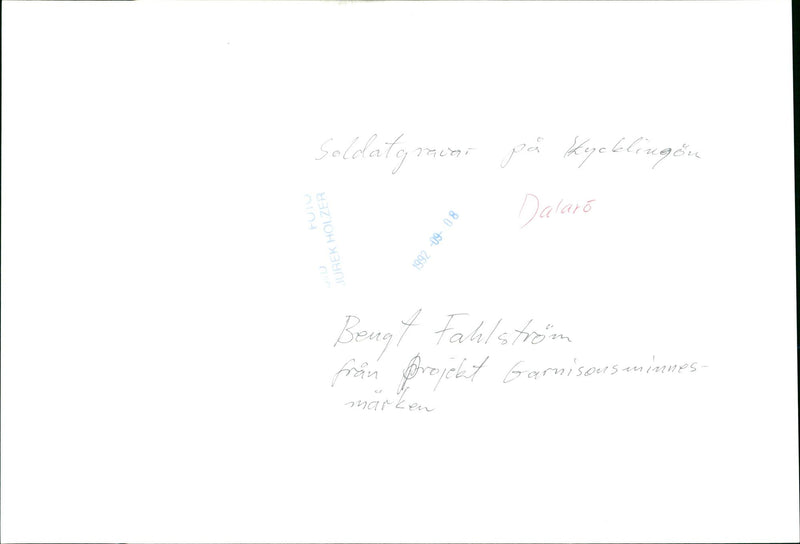 Soldatgravar på Kycklingön
Dalarö
FOTO
JUREK HOLZER
1992 -09- 08
Bengt Fahlström
från projekt Garnisonsminnes-
märken